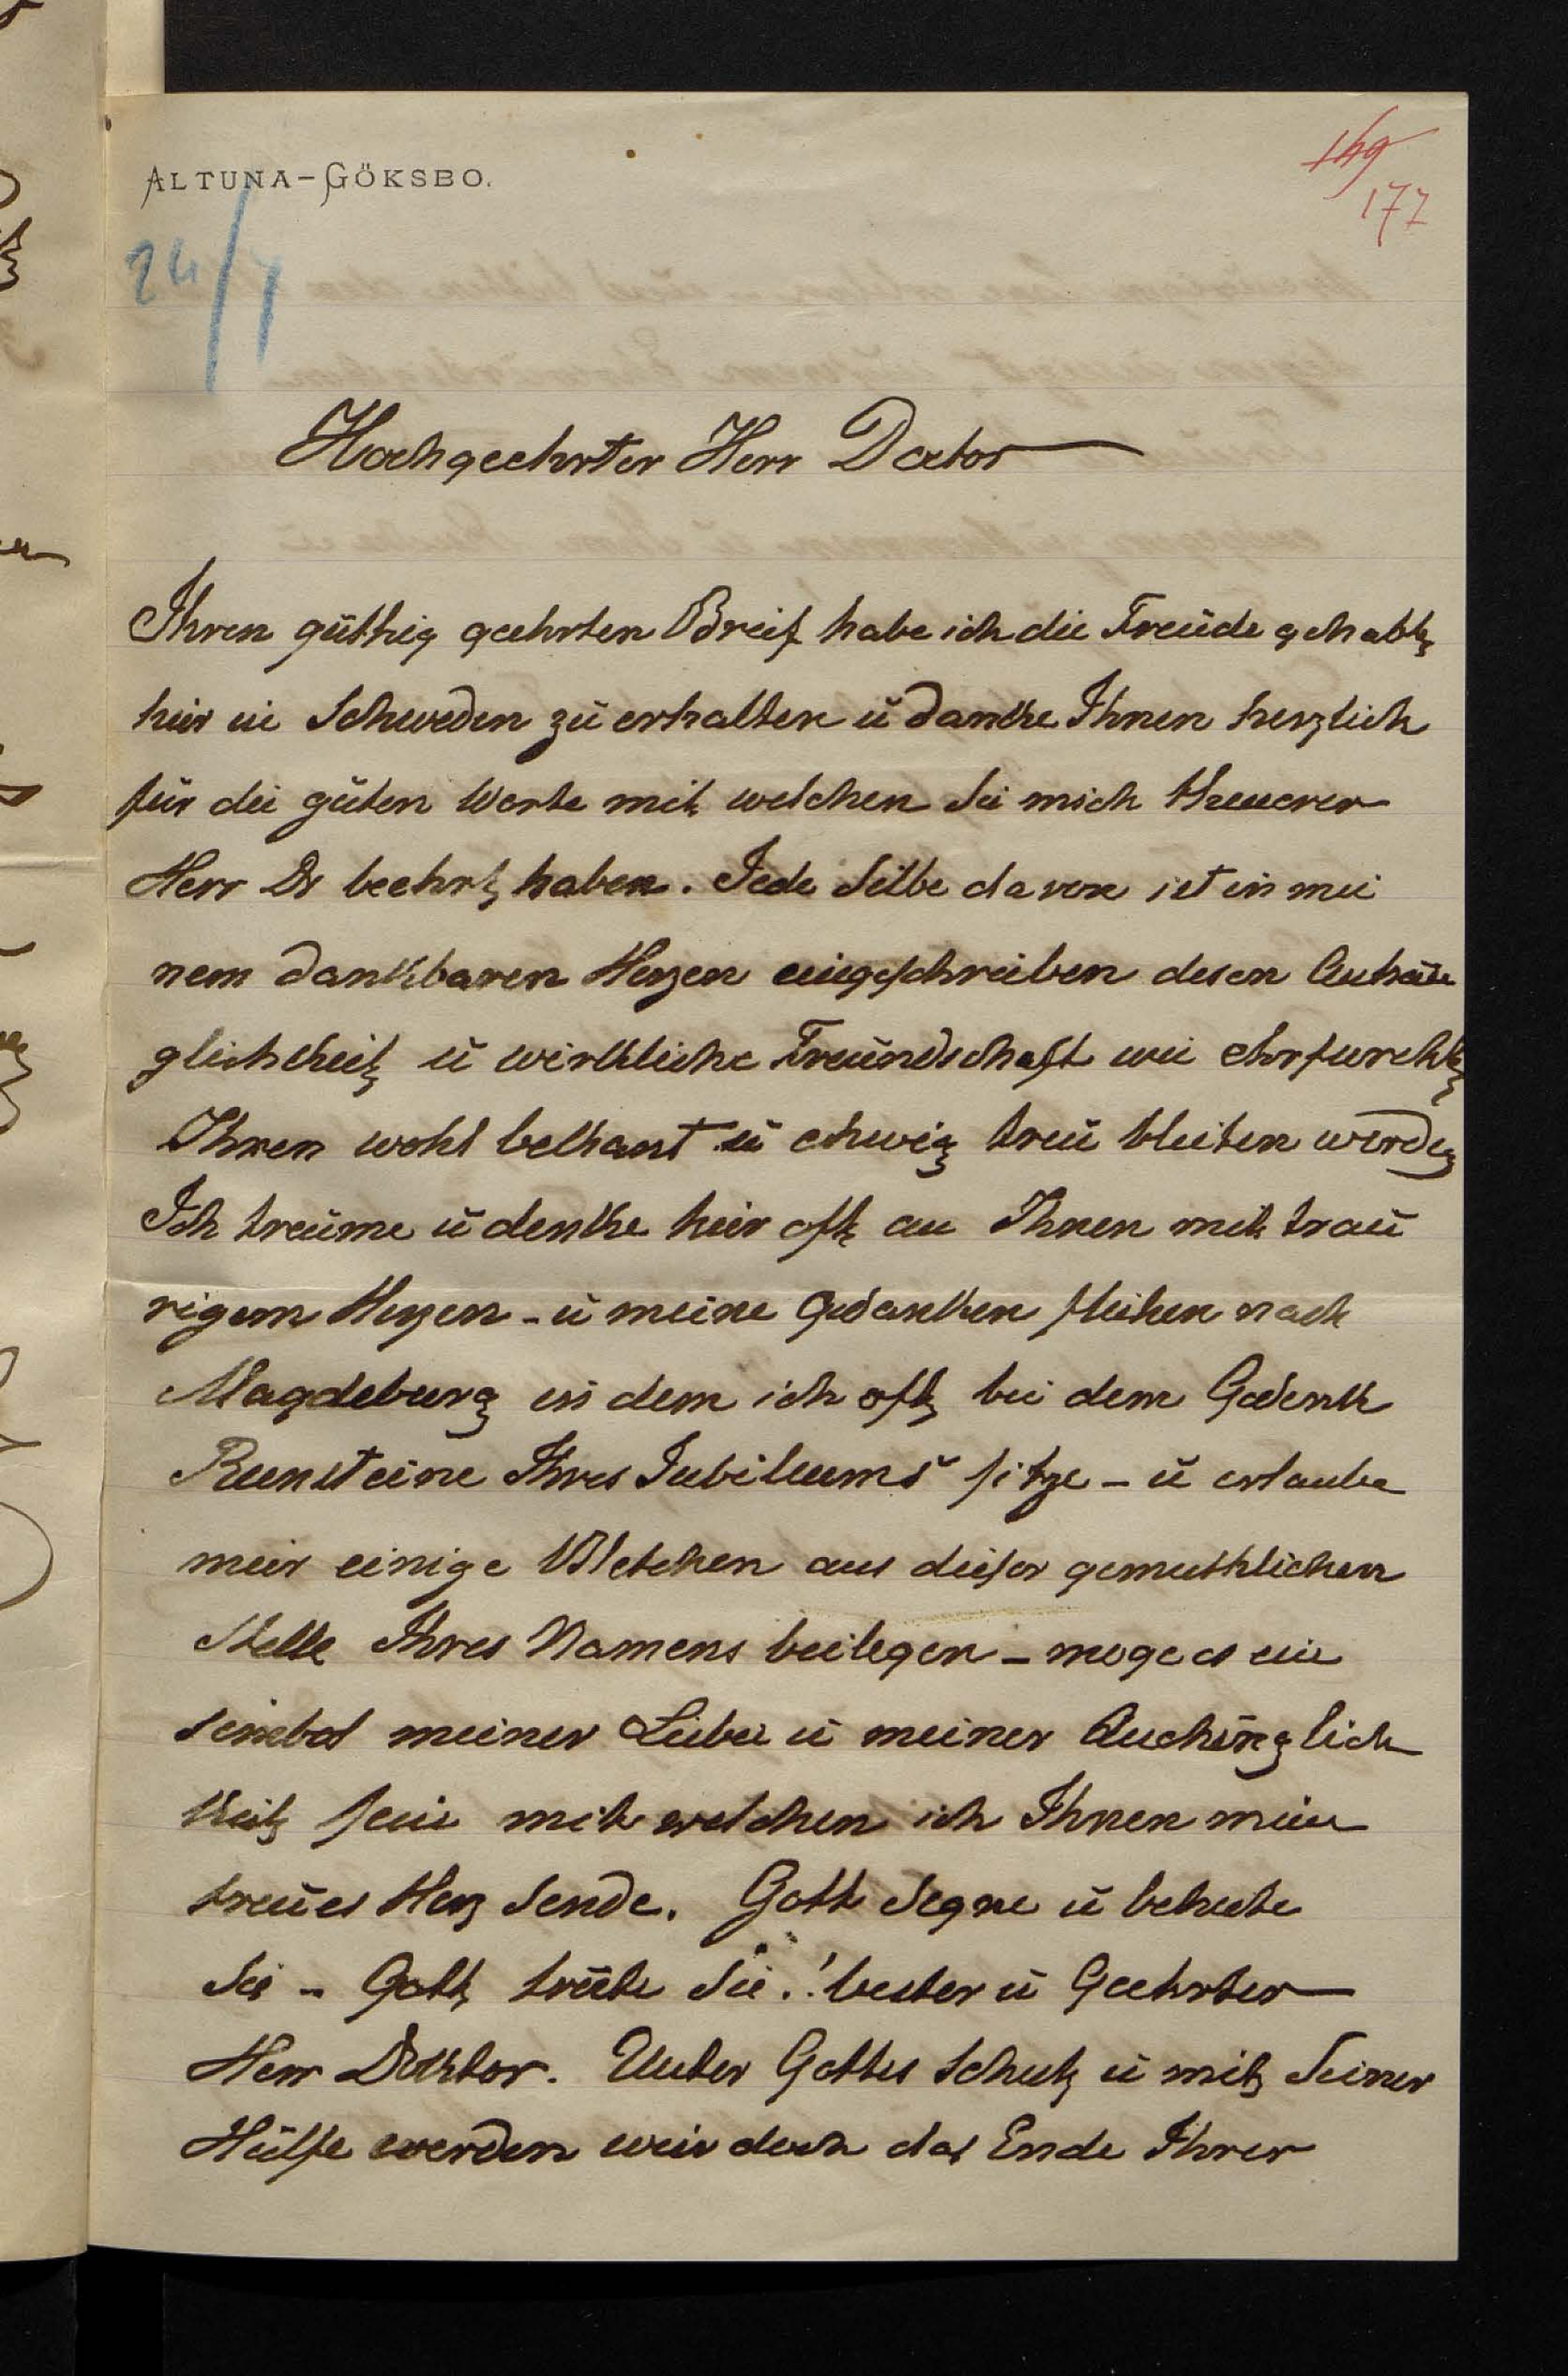 ALTUNA-GÖKSBO.
149
177
24/7
Hochgeehrter Herr Doctor
Ihren güthig geehrten Breif habe ich die Freude gehabt
heir in Schweden zu erhalten ŭ danke Ihnen herzlich
für die guten Worte mit welchen Sie mich theuerer
Herr Dr beehrt haben. Jede Silbe davon ist in mei
nem dankbaren Herzen eingeschreiben desen Anhän
glichkeit ŭ wirkliche Freundschaft wie ehrfurcht
Ihnen wohl bekant ŭ ehwig treu bleiben werde
Ich treume ŭ denke heir oft an Ihnen mit trau
rigem Herzen - ŭ meine Gedanken fleihen nach
Magdeburg in dem ich oft bei dem Gedenk
Runsteine Ihres Jubileums sitze - ŭ erlaube
meir einige Bletchen aus dieser gemuthlichen
Stelle Ihres Namens beilegen - moge es ein
meiner Liebe ŭ meiner Anhänglich
keit sein mit welchen ich Ihnen mein
treues Herz sende. Gott segne ŭ behute
Sie - Gott Sie! bester ŭ Geehrter
Herr Doktor. Unter Gottes Schutz ŭ mit Seiner
Hülfe werden weir doch das Ende Ihrer